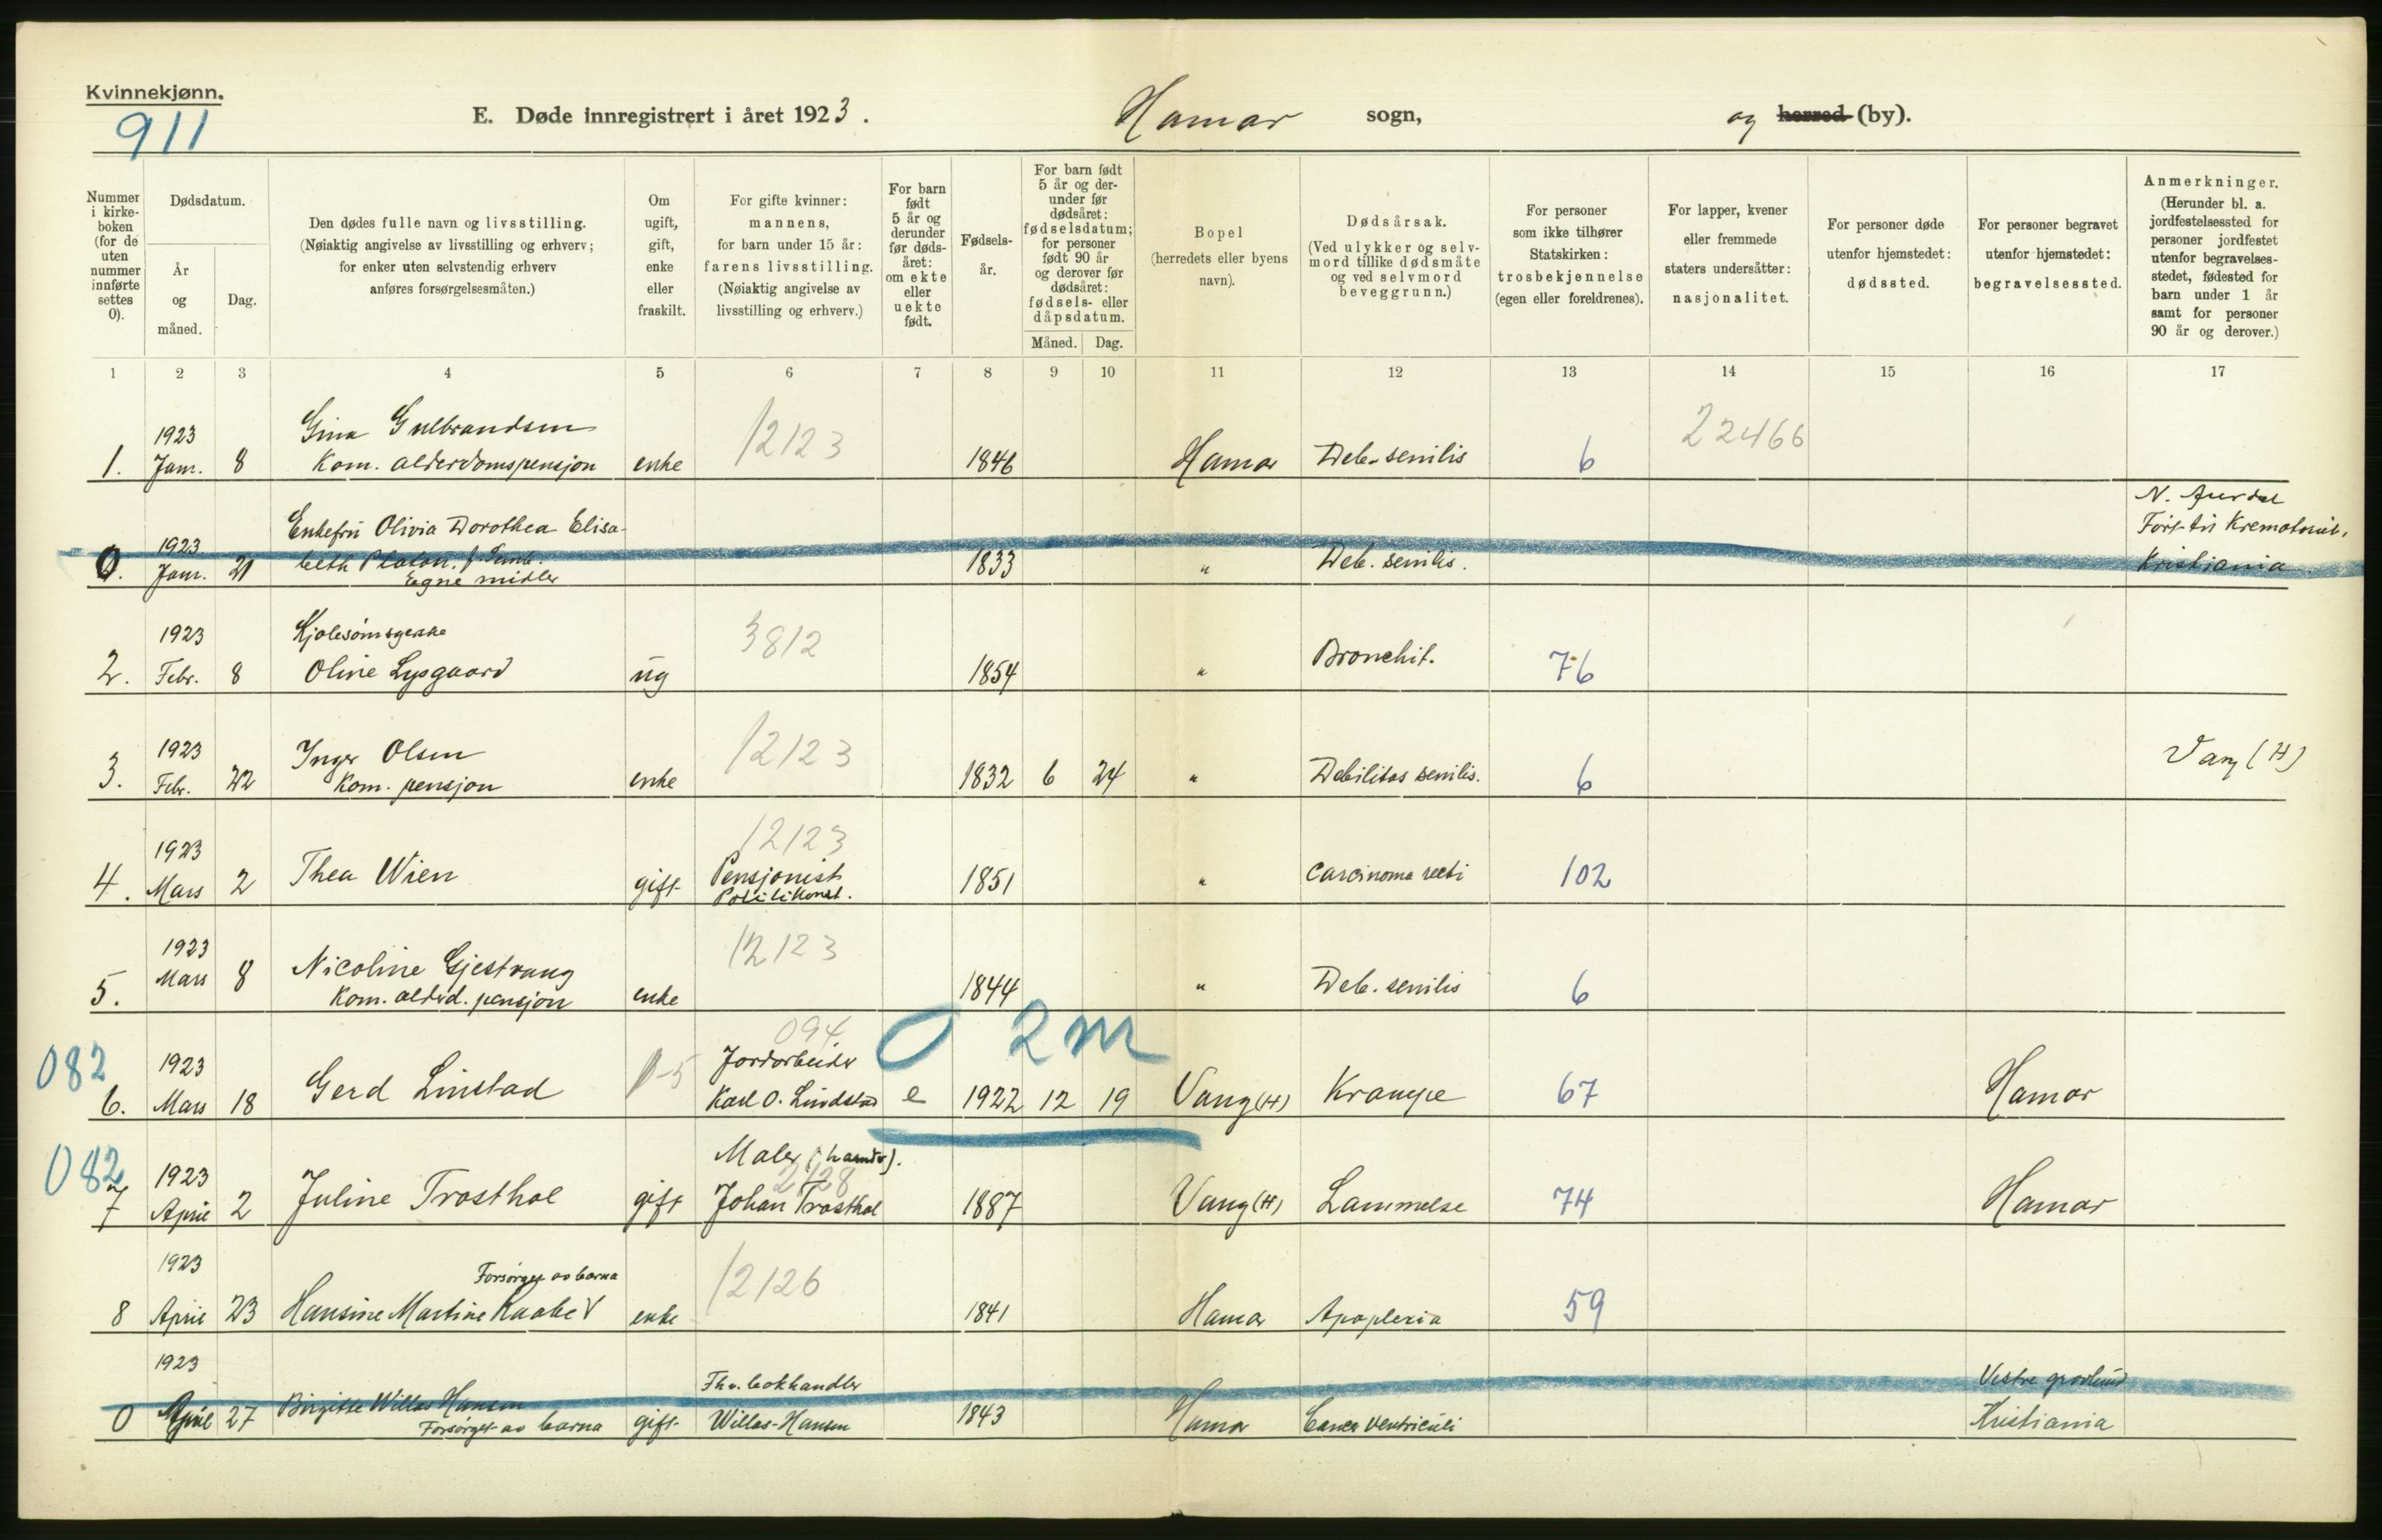 Kvinnekjønn.
911
E. Døde innregistrert i året 1923.
Hamar sogn,
og herred (by).
Nummer i kirke-boken (for de uten nummer innførte settes 0).
Dødsdatum.
År og måned.
Dag.
Den dødes fulle navn og livsstilling.
(Nøiaktig angivelse av livsstilling og erhverv;
for enker uten selvstendig erhverv
anføres forsørgelsesmåten.)
Om ugift, gift, enke eller fraskilt.
For gifte kvinner:
mannens,
for barn under 15 år:
farens livsstilling.
(Nøiaktig angivelse av
livsstilling og erhverv.)
For barn født 5 år og derunder før døds-året: om ekte eller uekte født.
Fødsels-år.
For barn født 5 år og der-under før dødsåret: fødselsdatum; for personer født 90 år og derover før dødsåret: fødsels- eller dåpsdatum.
Måned.
Dag.
Bopel
(herredets eller byens
navn).
Dødsårsak.
(Ved ulykker og selv-
mord tillike dødsmåte
og ved selvmord
beveggrunn.)
For personer
som ikke tilhører
Statskirken:
trosbekjennelse
(egen eller foreldrenes).
For lapper, kvener
eller fremmede
staters undersåtter:
nasjonalitet.
For personer døde
utenfor hjemstedet:
dødssted.
For personer begravet
utenfor hjemstedet:
begravelsessted.
Anmerkninger.
(Herunder bl. a.
jordfestelsessted for
personer jordfestet
utenfor begravelses-
stedet, fødested for
barn under 1 år
samt for personer
90 år og derover.)
1 2 3 4 5 6 7 8 9 10 11 12 13 14 15 16 17
1923 Gina Gulbrandsen 12123 22466
1. Jan. 8 Kom. alderdomspensjon enke 1846 Hamar Deb. senilis 6
N. Aurdal
Enkefru Olivia Dorothea Elisa- Ført til Krematoriet,
1923
0. Jan. 21 beth Platou, f. 1833 " Deb. senilis. Kristiania
Egne midler
1923 3812
2. Febr. 8 Oline Lysgaard ug 1854 " Bronchit. 76
1923 Inger Olsen 12123 Vang (H)
3. Febr. 22 Kom. pensjon enke 1832 6 24 " Debilitas senilis. 6
1923 12123
4. Mars 2 Thea Wien gift Pensjonist 1851 " Carcinoma recti 102
Politikonst.
1923 12123
5. Mars 8 Nicoline Gjestvang
Kom. alderd. pensjon enke 1844 " Deb. senilis 6
094 0 2m
082 1923 Jordarbeider
6. Mars 18 Gerd Linstad Karl O. Lindstad e 1922 12 19 Vang (H) Krampe 67 Hamar
Maler (handv).
082 1923 2128
7 April 2 Juline Trosthol gift Johan Trosthol 1887 Vang (H) Lammelse 74 Hamar
1923 Forsørget av barna 12126
8 April 23 Hansine Martine Kaabe enke 1841 Hamar Apoplexia 59
1923 Fhv. bokhandler Vestre gravlund
0 April 27 Birgitte Willas Hansen
Forsørget av barna gift Willas-Hansen 1843 Hamar Cancer ventriculi Kristiania